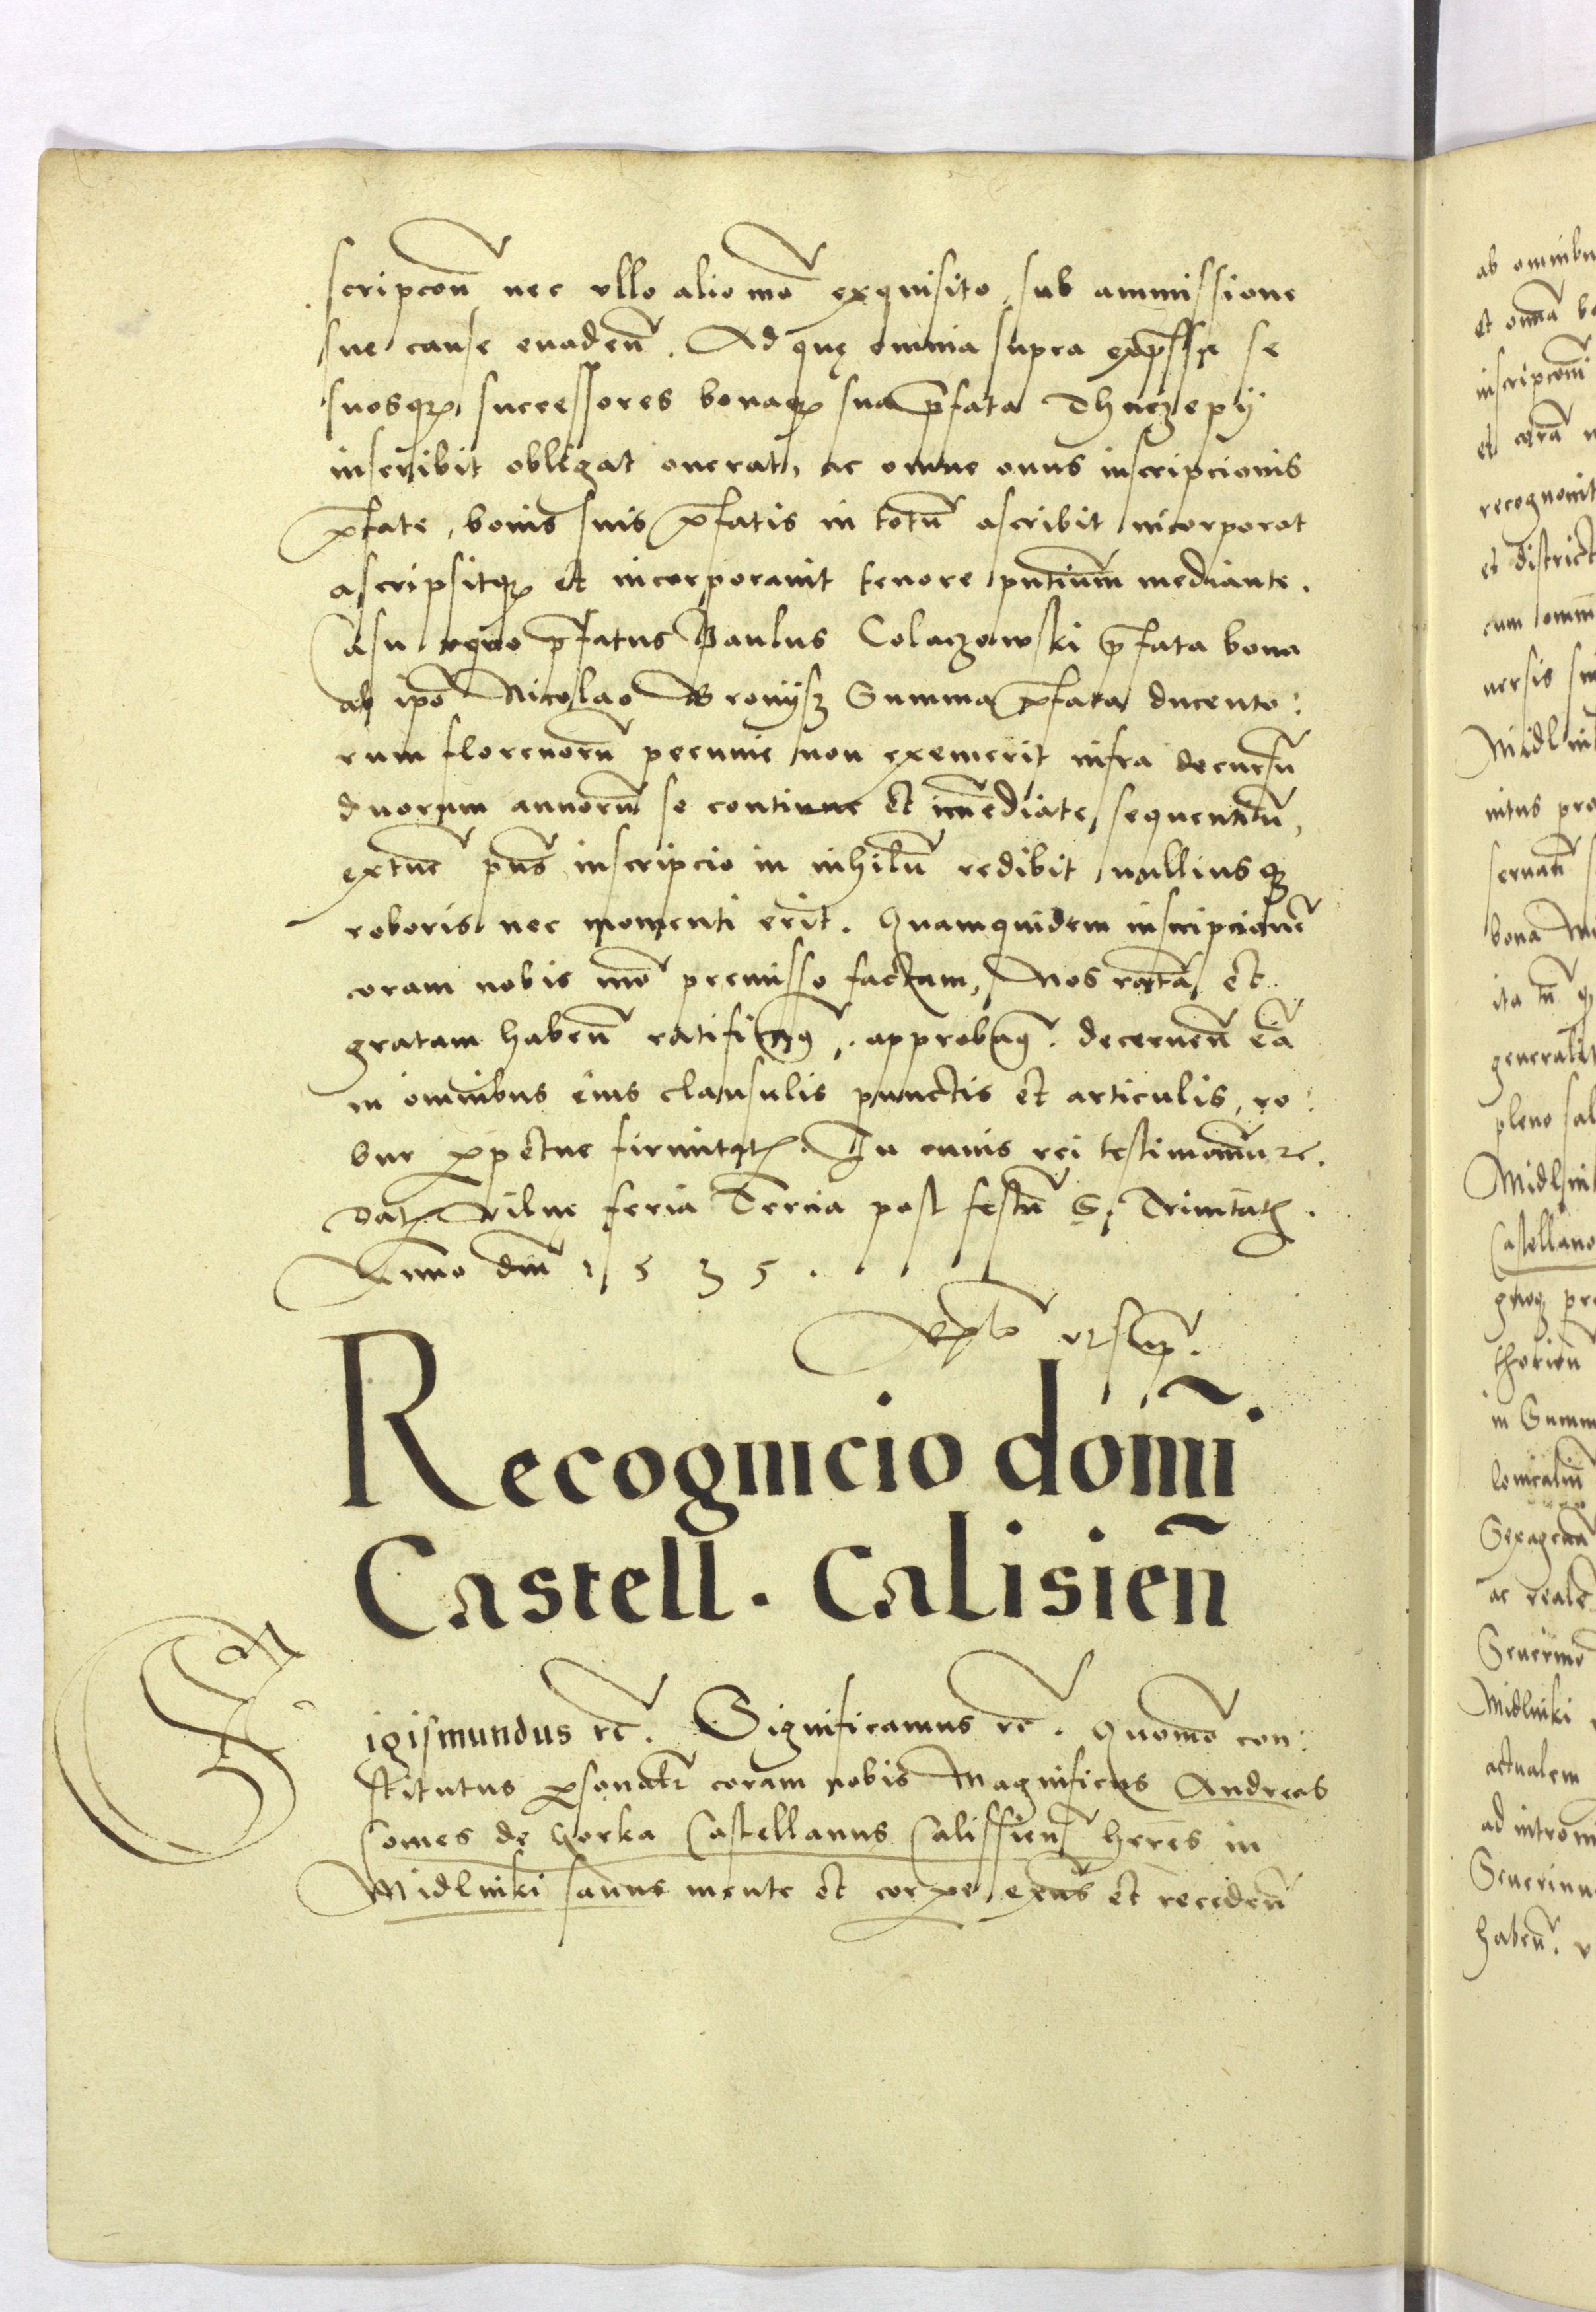 scripcoñ nec ullo alio mõ exquisito, sub ammissione
sue cause evadeñ. Ad quę omnia supra expssa se
suosqꝫ successores bonaqꝫ sua p̃fata Thuczepy
inscribit obligat onerat, ac omne onus inscripcionis
p̃fate, bonis suis p̃fatis in totũ ascribit incorporat
ascripsitqꝫ et incorporavit tenore pñtium mediante.
Casu vero p̃fatus Paulus Colaczowski p̃fata bona
ab ip̃o Nicolao Bronijsz Summa p̃fata ducento:
rum florenorũ pecunie non exemerit infra decursũ
duorum annorũ se continue et im̃ediate sequentiũ,
extunc pñs inscripcio in nihilũ redibit nulliusqꝫ
roboris nec momenti erit. Quamquidem inscripcionẽ
coram nobis mõ premisso factam, Nos ratã et
gratam habeñ ratificamꝰ, approbamꝰ. decerneñ eã
in omnibus eius clausulis punctis et articulis, ro:
bur ꝑpetue firmitatꝭ. In cuius rei testimoniũ ꝛc.
Datꝭ Vilne feria Tercia post festũ S. Trinitatꝭ.
Anno dñi 1535.
ut sup̃.
Recognicio domĩ
Castell. Calisieñ
Sigismundus ꝛc̃. Significamus ꝛc̃. Quomõ con:
stitutus ꝑsonalr̃ coram nobis Magnificus Andreas
Comes de Gorka Castellanus Calissieñ heres in
Midlniki sanus mente et corꝑe exñs et recedeñ
ab omnibu
et
inscripconi
et corã
recognovit
et district
cum omni
versis
Midlni
nitus pro
servatũ
bona
ita tñ
generalit
pleno
Midlni
Castellano
pre
in Summ
Sexagena
ac reale
Severino
Midlniki
actualem
ad intromi
Severinu
habeñ.